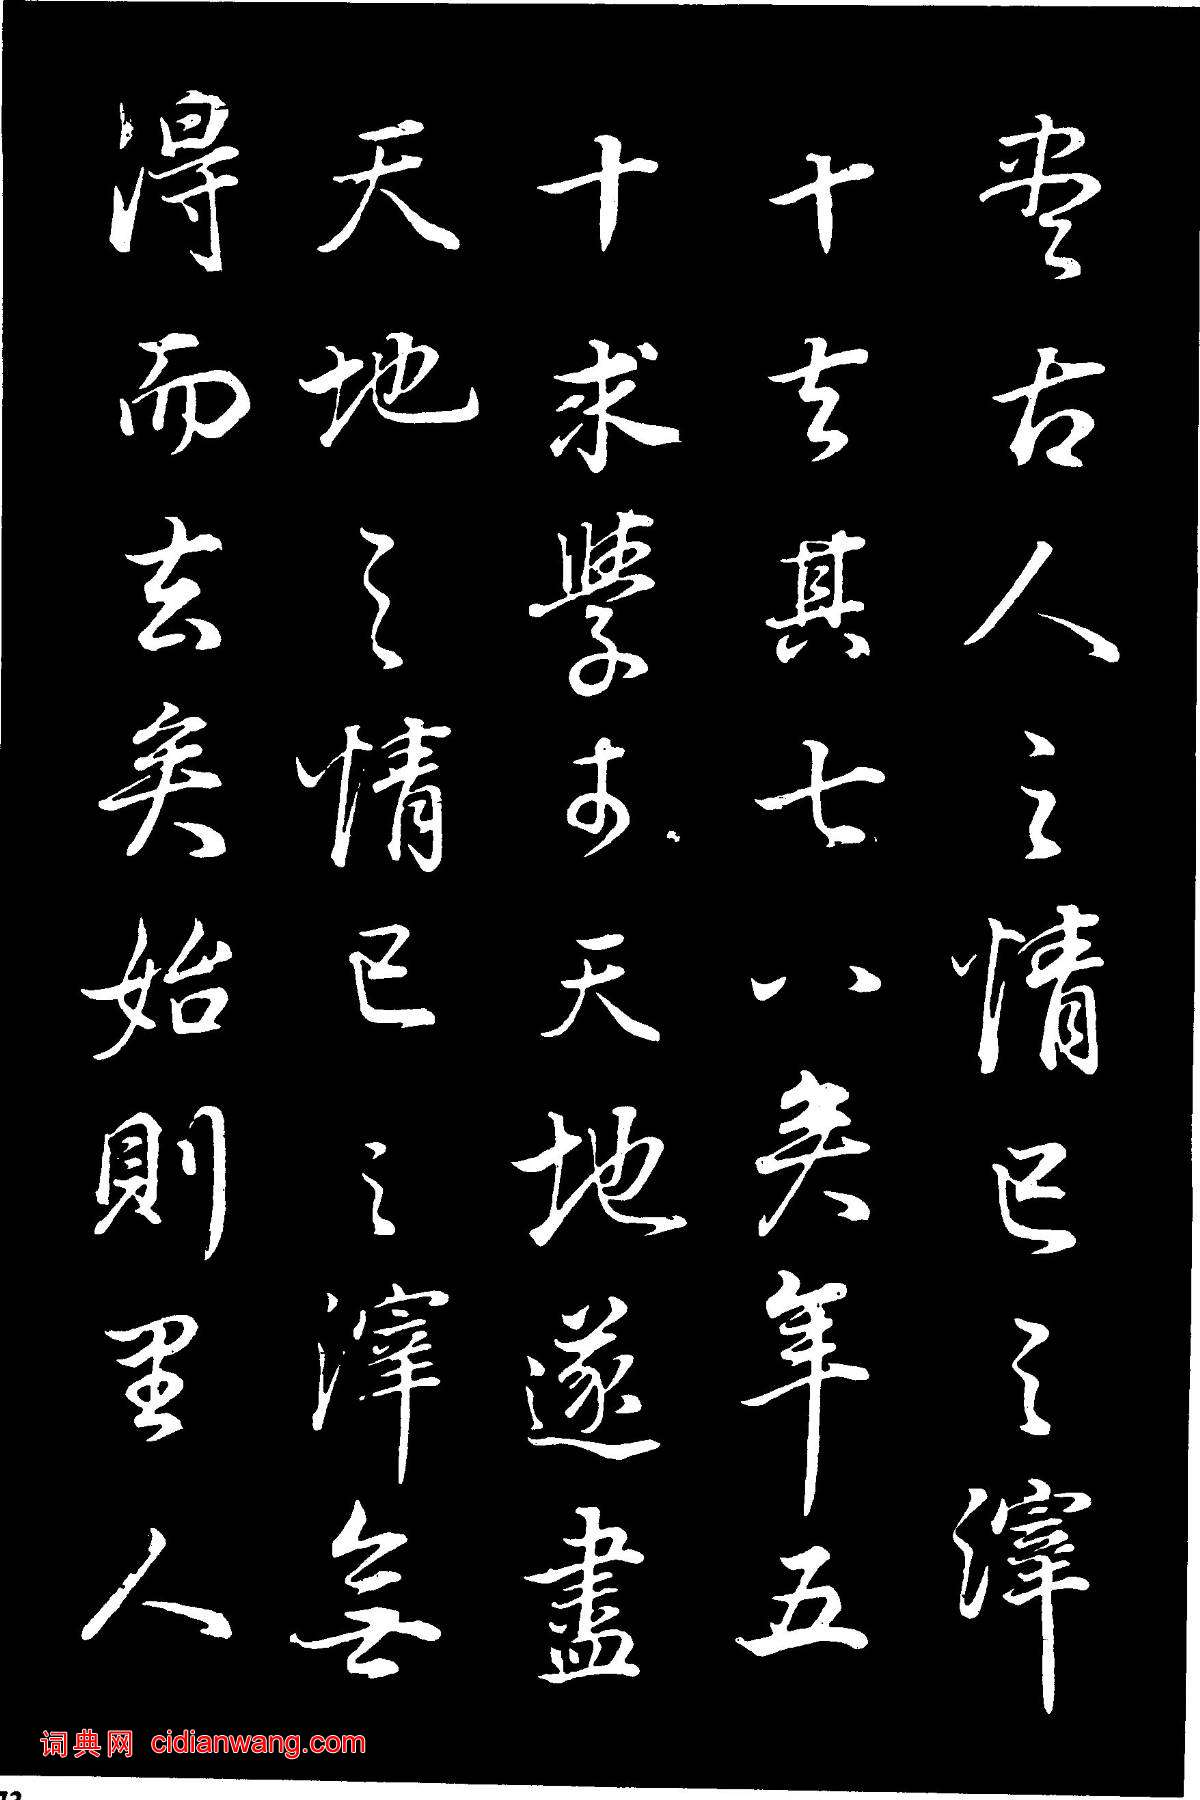 尽古人之情己之滓
十去其七八矣年五
十求學於天地遂盡
天地之情己之滓無
得而去矣始則里人
词典网 cidianwang.com